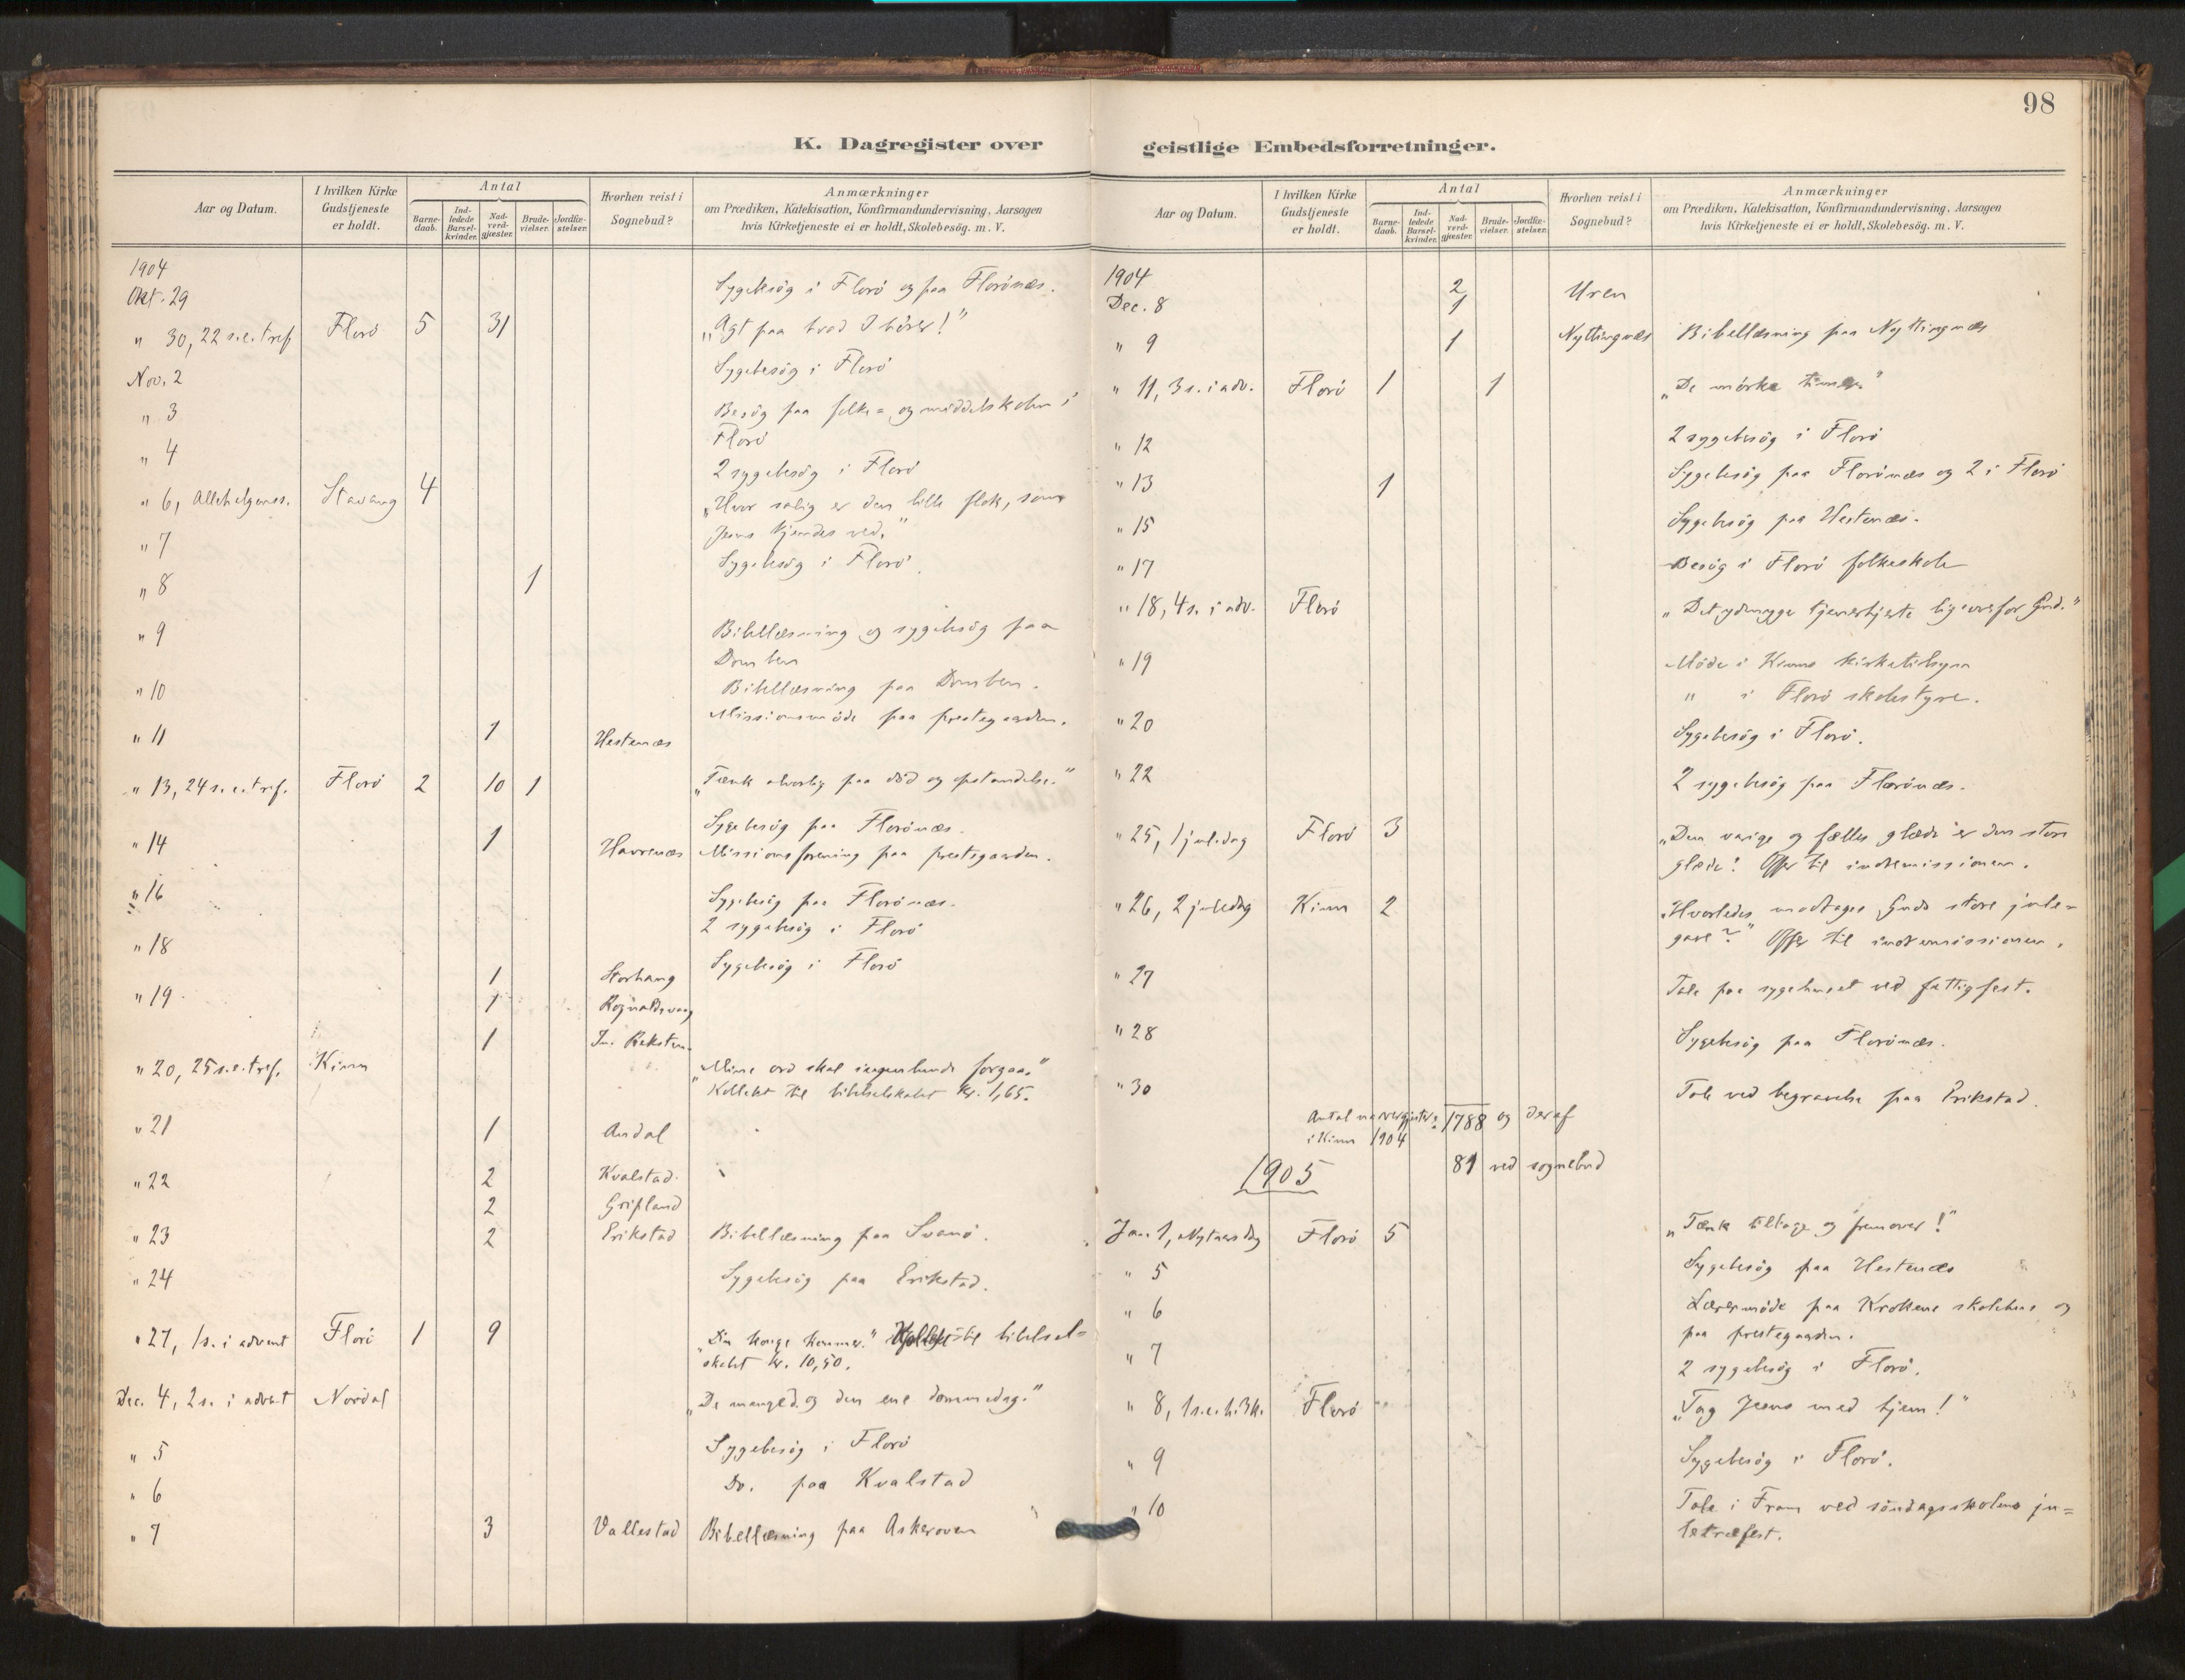 98
K. Dagregister over geistlige Embedsforretninger.
Aar og Datum.
I hvilken Kirke Gudstjeneste er holdt.
Antal
Barne-daab.
Ind-ledede Barsel-kvinder.
Nad-verd-gjæster.
Brude-vielser.
Jordfæ-stelser.
Hvorhen reist i Sognebud?
Anmærkninger
om Prædiken, Katekisation, Konfirmandundervisning, Aarsagen
hvis Kirketjeneste ei er holdt, Skolebesög. m. V.
1904
Okt. 29 Sygebesög i Florö og paa Florönæs.
" 30, 22 s.e.tref Florö 5 31 „Agt paa hvad I hörer!"
Nov. 2 Sygebesög i Florö
" 3 Besög paa folke= og middelskolen i
Florö
" 4 2 sygebesög i Florö
" 6, Allehelgenss. Stavang 4 „Hvor salig er den lille flok, som
Jesus kjendes ved."
" 7 Sygebesög i Florö.
" 8 1
" 9 Bibellæsning og sygebesög paa
Domben
" 10 Bibellæsning paa Domben.
Missionsmöde paa prestegaarden.
" 11 1 Hestenæs
" 13, 24 s.e.tref. Florö 2 10 1 „Tænk alvorlig paa död og opstandelse."
Sygebesög paa Florönæs.
" 14 1 Havrenæs Missionsforening paa prestegaarden.
" 16 Sygebesög paa Florönæs.
2 sygebesög i Florö
" 18 Sygebesög i Florö
1 Storhaug
" 19 1 Rognaldsvaag
1 In. Reksten
" 20, 25 s.e.tref. Kinn „Mine ord skal ingenlunde forgaa."
Kollekt til bibelselskabet kr. 1,65.
" 21 1 Andal
" 22 2 Kvalstad.
2 Gripland
" 23 2 Erikstad Bibellæsning paa Svanö.
" 24 Sygebesög paa Erikstad.
" 27, 1 s. i advent Florö 1 9 „Din konge kommer." Kollekt til bibelsel=
skabet kr. 10,50.
Dec. 4, 2 s. i advent Nordal „De mange d. og den ene dommedag."
" 5 Sygebesög i Florö
" 6 Do. paa Kvalstad
" 7 3 Vallestad Bibellæsning paa Askeroven
Aar og Datum.
I hvilken Kirke Gudstjeneste er holdt.
Antal
Barne-daab.
Ind-ledede Barsel-kvinder.
Nad-verd-gjæster.
Brude-vielser.
Jordfæ-stelser.
Hvorhen reist i Sognebud?
Anmærkninger
om Prædiken, Katekisation, Konfirmandundervisning, Aarsagen
hvis Kirketjeneste ei er holdt, Skolebesög. m. V.
1904
2 Uren
Dec. 8 1
" 9 1 Nyttingnæs Bibellæsning paa Nyttingnæs
" 11, 3 s. i adv. Florö 1 1 „De mörke timer."
" 12 2 sygebesög i Florö
" 13 1 Sygebesög paa Florönæs og 2 i Florö
" 15 Sygebesög paa Hestenæs.
" 17 Besög i Florö folkeskole
" 18, 4 s. i adv. Florö „Det ydmyge tjenerhjerte lige overfor Gud."
" 19 Möde i Kinns kirketilsyn
" i Florö skolestyre.
" 20 Sygebesög i Florö.
" 22 2 sygebesög paa Florönæs.
" 25, 1 juledag Florö 3 „Den varige og fælles glæde er den store
glæde! Offer til indremissionen.
" 26, 2 juledag Kinn 2 „Hvorledes modtages Guds store jule=
gave?" Offer til indremissionen.
" 27 Tale paa sygehuset ved fattigfest.
" 28 Sygebesög paa Florönæs.
" 30 Tale ved begravelse paa Erikstad.
Antal nadvergjester: 1788 og deraf
i Kinn 1904
81 ved sognebud
1905
Jan. 1, Nytaarsdag Florö 5 „Tænk tilbage og fremover!"
" 5 Sygebesög paa Hestenæs
" 6 Lærermöde paa Krokene skolehus og
paa prestegaarden.
" 7 2 sygebesög i Florö.
" 8, 1 s.e.h.3k. Florö „Tag Jesus med hjem!"
" 9 Sygebesög i Florö.
" 10 Tale i Fram ved söndagsskolens ju=
letræfest.